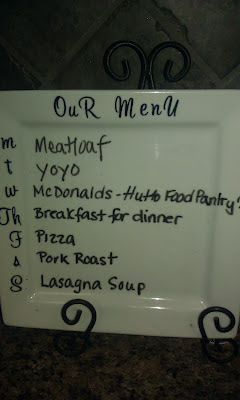 OuR MenU
m Meatloaf
t YOYO
W McDonalds - Hutto Food Pantry?
Th Breakfast for dinner
F Pizza
s Pork Roast
S Lasagna Soup